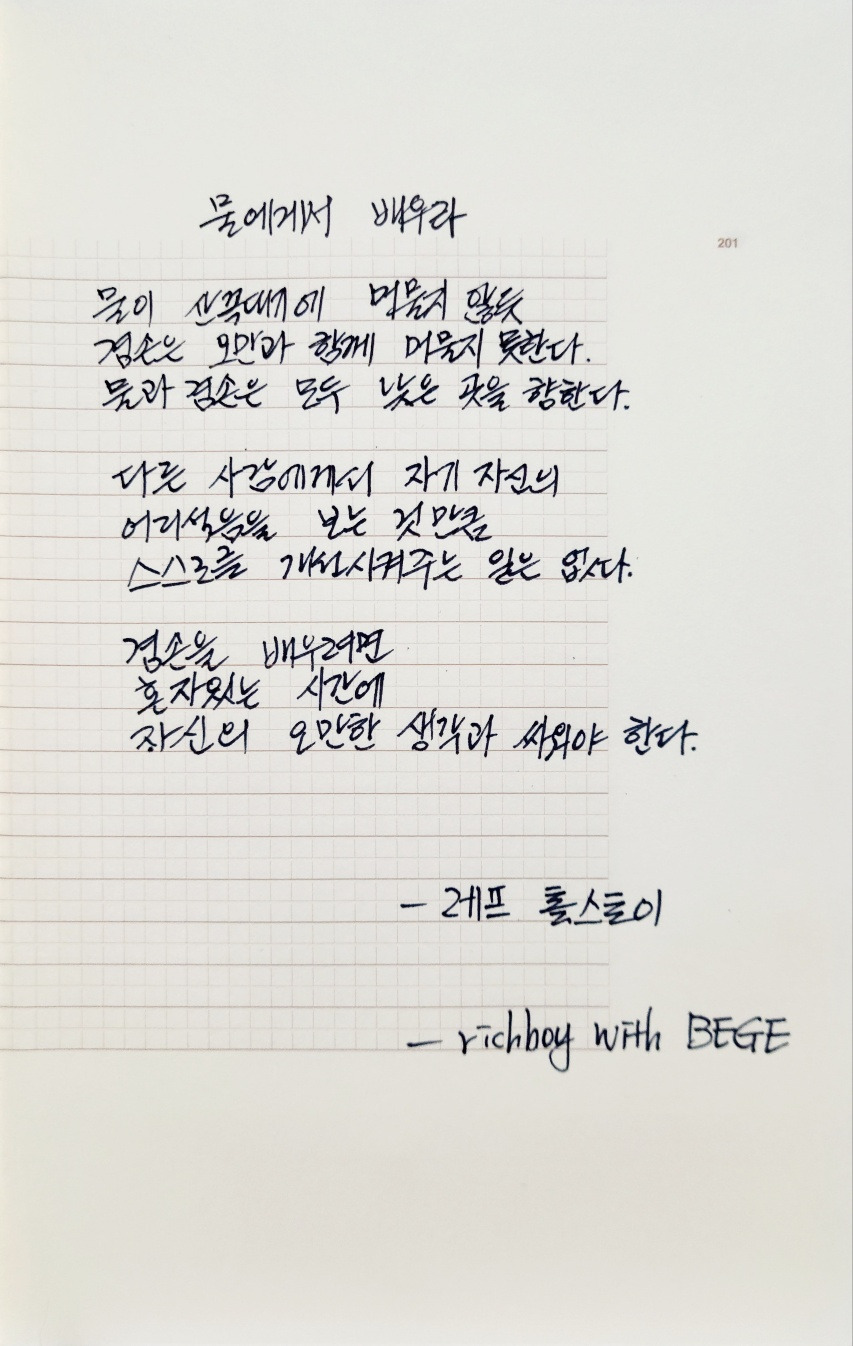 물에게서 배우라
201
물이 산꼭대기에 머물지 않듯
겸손은 오만과 함께 머물지 못한다.
물과 겸손은 모두 낮은 곳을 향한다.
다른 사람에게서 자기 자신의
어리석음을 보는 것만큼
스스로를 개선시켜주는 일은 없다.
겸손을 배우려면
혼자있는 시간에
자신의 오만한 생각과 싸워야 한다.
- 레프 톨스토이
- richboy with BEGE